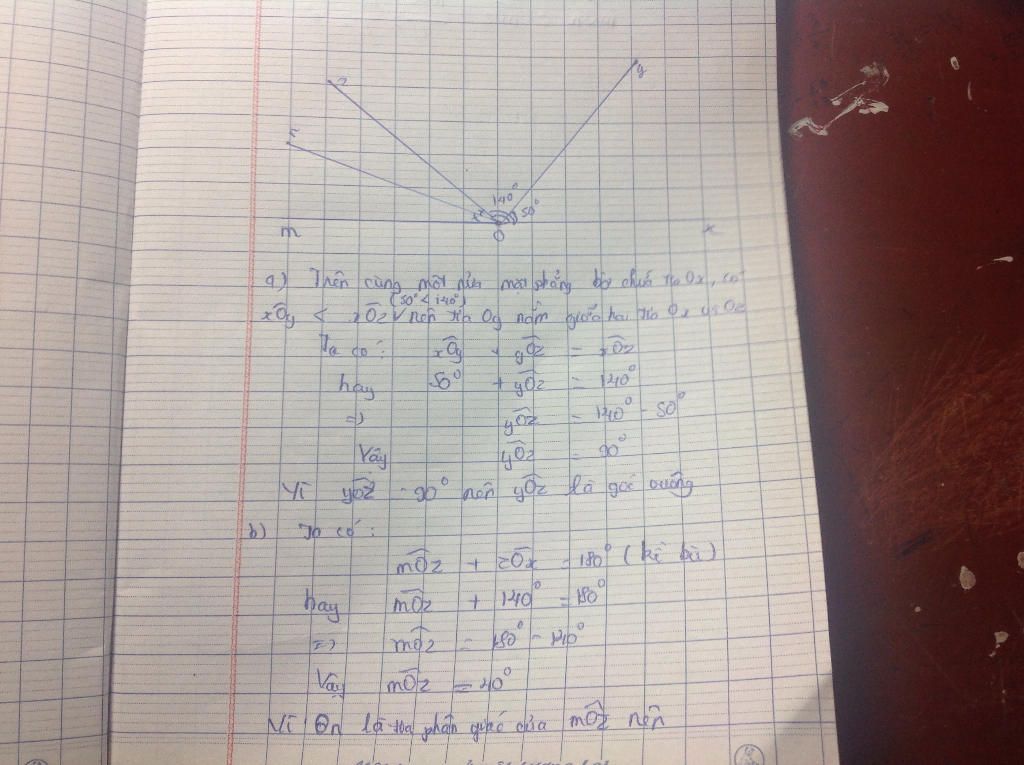 z
y
n
140°
50°
m
O
x
a) Trên cùng một nửa mặt phẳng bờ chứa tia Ox, có
(50° < 140°)
xOy < xOz nên tia Oy nằm giữa hai tia Ox và Oz
Ta có: xOy + yOz = xOz
hay 50° + yOz = 140°
=> yOz = 140° - 50°
Vậy yOz = 90°
Vì yOz = 90° nên yOz là góc vuông
b) Ta có:
mOz + zOx = 180° (kề bù)
hay mOz + 140° = 180°
=> mOz = 180° - 140°
Vậy mOz = 40°
Vì On là tia phân giác của mOz nên